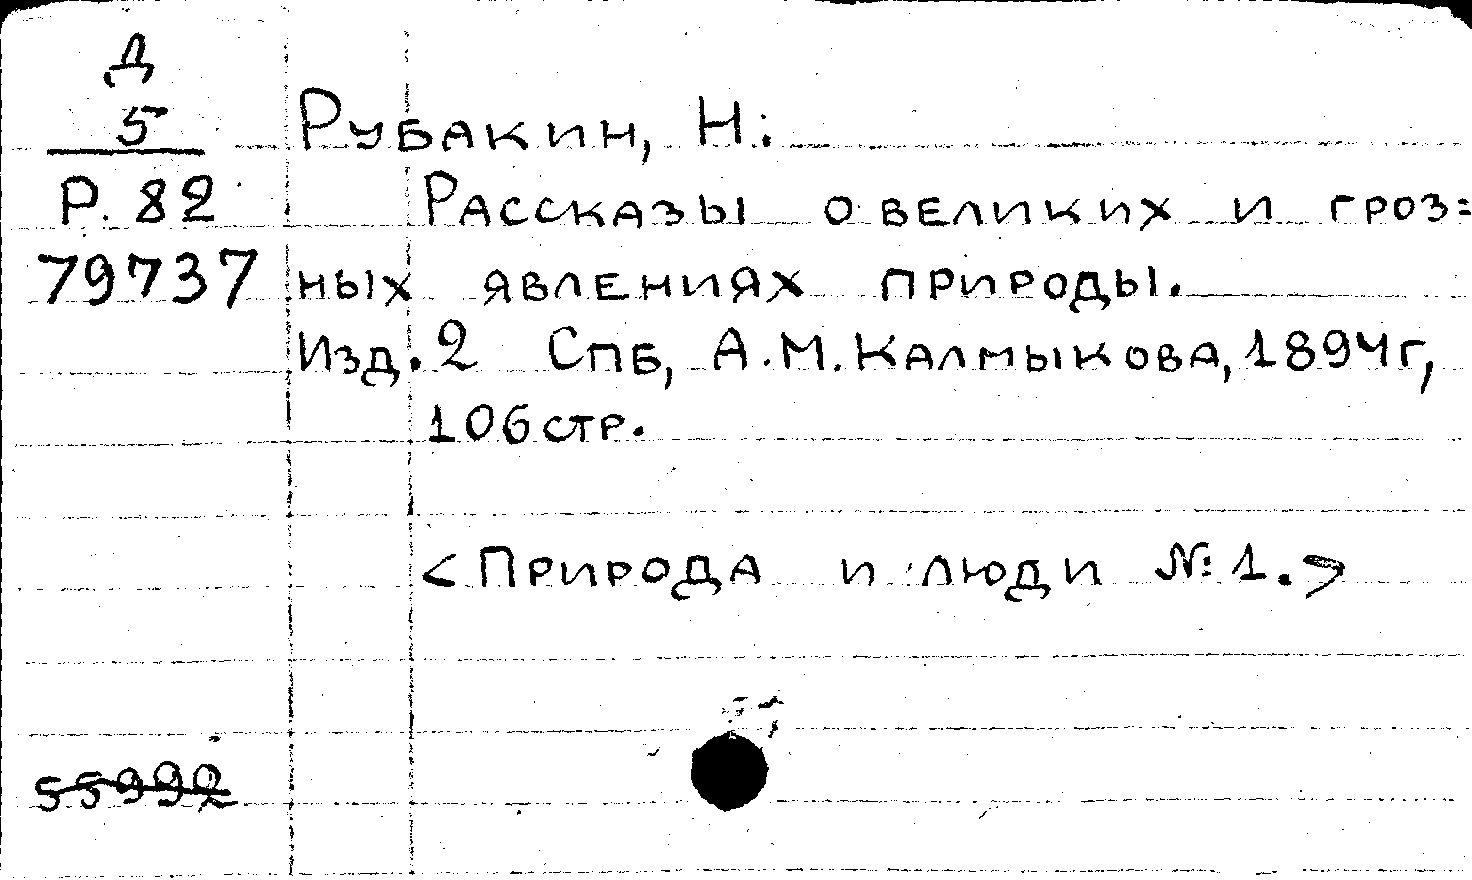 Д
5
Р. 82
79737
Рубакин, Н.
Рассказы о великих и гроз=
ных явлениях природы.
Изд. 2 Спб, А.М. Калмыкова, 1894г,
106 стр.
<Природа и люди №1.>
55992